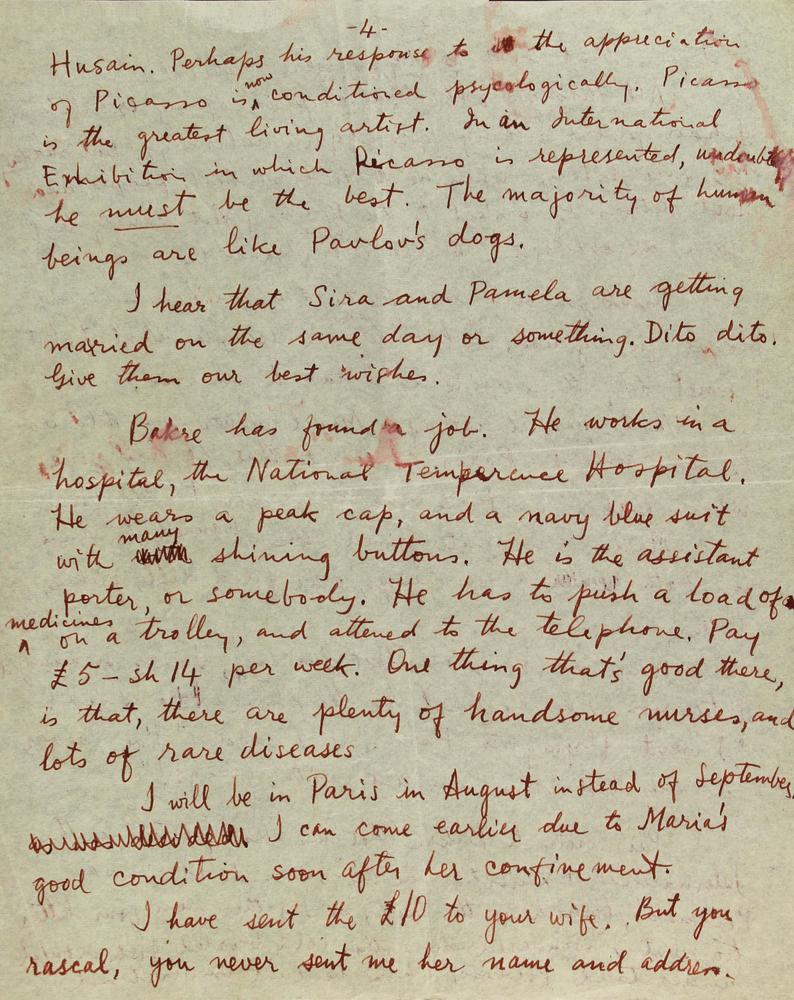 -4-
Husain. Perhaps his response to the appreciation
of Picasso is now conditioned psycologically. Picasso
is the greatest living artist. In an International
Exhibition in which Picasso is represented, undoubtly
he must be the best. The majority of human
beings are like Pavlov's dogs.
I hear that Sira and Pamela are getting
married on the same day or something. Dito dito.
Give them our best wishes.
Bakre has found a job. He works in a
hospital, the National Temperence Hospital.
He wears a peak cap, and a navy blue suit
with many shining buttons. He is the assistant
porter, or somebody. He has to push a load of
medicines on a trolley, and attened to the telephone. Pay
£5 - sh 14 per week. One thing that's good there,
is that, there are plenty of handsome nurses, and
lots of rare diseases
I will be in Paris in August instead of September.
I can come earlier due to Maria's
good condition soon after her confinement.
I have sent the £10 to your wife. But you
rascal, you never sent me her name and address.